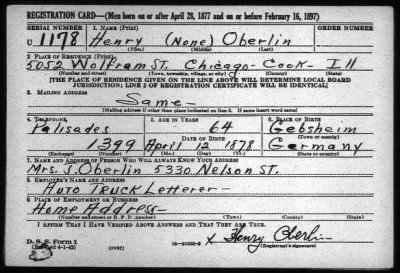 REGISTRATION CARD—(Men born on or after April 28, 1877 and on or before February 16, 1897)
SERIAL NUMBER 1. NAME (Print) ORDER NUMBER
U 1178 Henry (None) Oberlin
(First) (Middle) (Last)
2. PLACE OF RESIDENCE (Print)
5052 Wolfram ST. Chicago - Cook - Ill
(Number and street) (Town, township, village, or city) (County) (State)
[THE PLACE OF RESIDENCE GIVEN ON THE LINE ABOVE WILL DETERMINE LOCAL BOARD
JURISDICTION; LINE 2 OF REGISTRATION CERTIFICATE WILL BE IDENTICAL]
3. MAILING ADDRESS
Same -
[Mailing address if other than place indicated on line 2. If same insert word same]
4. TELEPHONE 5. AGE IN YEARS 6. PLACE OF BIRTH
Palisades 64 Gebsheim
DATE OF BIRTH (Town or county)
1399 April 12 1878 Germany
(Exchange) (Number) (Mo.) (Day) (Yr.) (State or country)
7. NAME AND ADDRESS OF PERSON WHO WILL ALWAYS KNOW YOUR ADDRESS
Mrs. J. Oberlin 5330 Nelson ST.
8. EMPLOYER'S NAME AND ADDRESS
Auto Truck Letterer -
9. PLACE OF EMPLOYMENT OR BUSINESS
Home Address -
(Number and street or R. F. D. number) (Town) (County) (State)
I AFFIRM THAT I HAVE VERIFIED ABOVE ANSWERS AND THAT THEY ARE TRUE.
D. S. S. Form 1
(Revised 4-1-42) (over) 16-21630-2 x Henry Oberlin
(Registrant's signature)